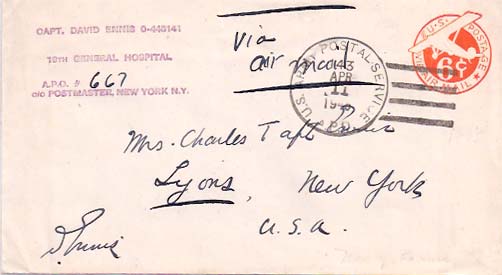 CAPT. DAVID ENNIS O-445141
19TH GENERAL HOSPITAL,
A.P.O. # 667
c/o POSTMASTER, NEW YORK N.Y.
Via
air mail
U.S. ARMY POSTAL SERVICE
APR
11
A.P.O.
U.S. POSTAGE
6¢
VIA AIR MAIL
Mrs. Charles Taft Ennis
Lyons, New York
U.S.A.
D Ennis